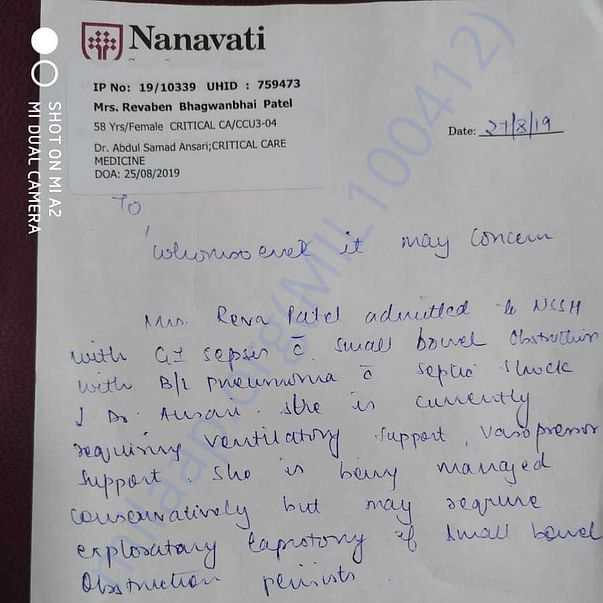 Nanavati
IP No: 19/10339 UHID : 759473
Mrs. Revaben Bhagwanbhai Patel
58 Yrs/Female CRITICAL CA/CCU3-04
Dr. Abdul Samad Ansari;CRITICAL CARE
MEDICINE
DOA: 25/08/2019
Date: 27/8/19
To
whomsoever it may concern
Mrs. Reva Patel admitted to NSSH
with GI sepsis c̄ small bowel obstruction
with B/L pneumonia c̄ septic shock
Dr. Ansari. She is currently
requiring ventilatory support, vasopressor
support. She is being managed
conservatively but may require
exploratory laprotomy if small bowel
obstruction persists.
SHOT ON MI A2
MI DUAL CAMERA
milaap.org/MIL100412)